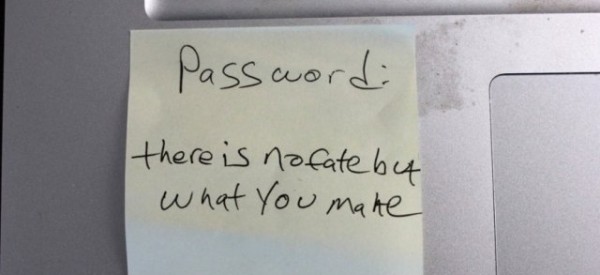 Password:
there is no fate but
what You make